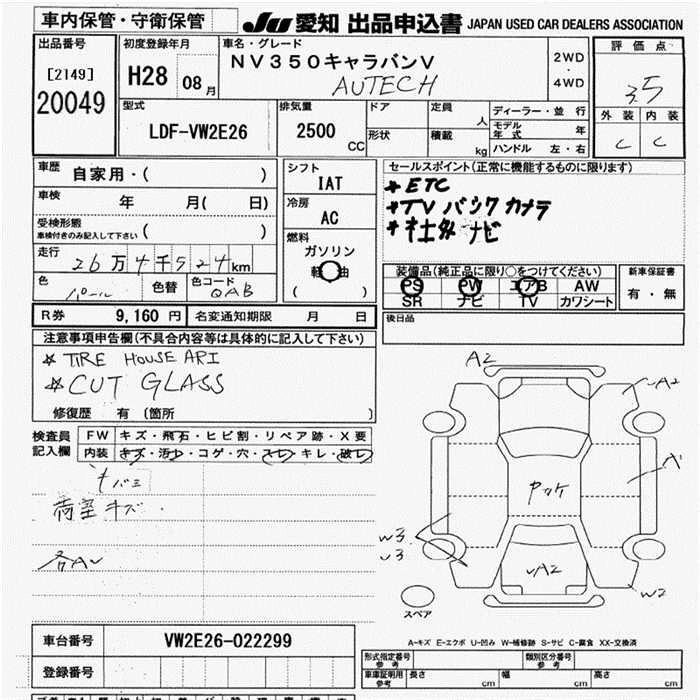 車内保管・守衛保管
JU 愛知 出品申込書 JAPAN USED CAR DEALERS ASSOCIATION
出品番号
[2149]
20049
初度登録年月
H28 08月
車名・グレード
NV350キャラバンV
AUTECH
2WD
・
4WD
評価点
3.5
外装 内装
C C
型式
LDF-VW2E26
排気量
2500
CC
ドア
形状
定員
人
積載
kg
ディーラー・並行
モデル年式 年
ハンドル 左・右
車歴
自家用・( )
車検
年 月( 日)
受検形態
車検付きのみ記入して下さい ( )
走行
26万4千524km
色
パール
色替
色コード
QAB
シフト
IAT
冷房
AC
燃料
ガソリン
軽油
( )
セールスポイント(正常に機能するものに限ります)
*ETC
*TV バックカメラ
*社外ナビ
装備品(純正品に限り○をつけてください)
PS PW エアB AW
SR ナビ TV カワシート
新車保証書
有・無
R券 9,160 円
名変通知期限 月 日
後日品
注意事項申告欄(不具合内容等は具体的に記入して下さい)
* TIRE HOUSE ARI
* CUT GLASS
修復歴 有(箇所 )
検査員
記入欄
FW キズ・飛石・ヒビ割・リペア跡・X要
内装 キズ・汚レ・コゲ・穴・スレ・キレ・破レ
荷室キズ
各AU
A2
A2
A
W3
U3
A2
W2
スペア
A-キズ E-エクボ U-凹み W-補修跡 S-サビ C-腐食 XX-交換済
車台番号
VW2E26-022299
登録番号
形式指定番号
参考
類別区分番号
参考
車庫証明用
参考
長さ cm
幅 cm
高さ cm